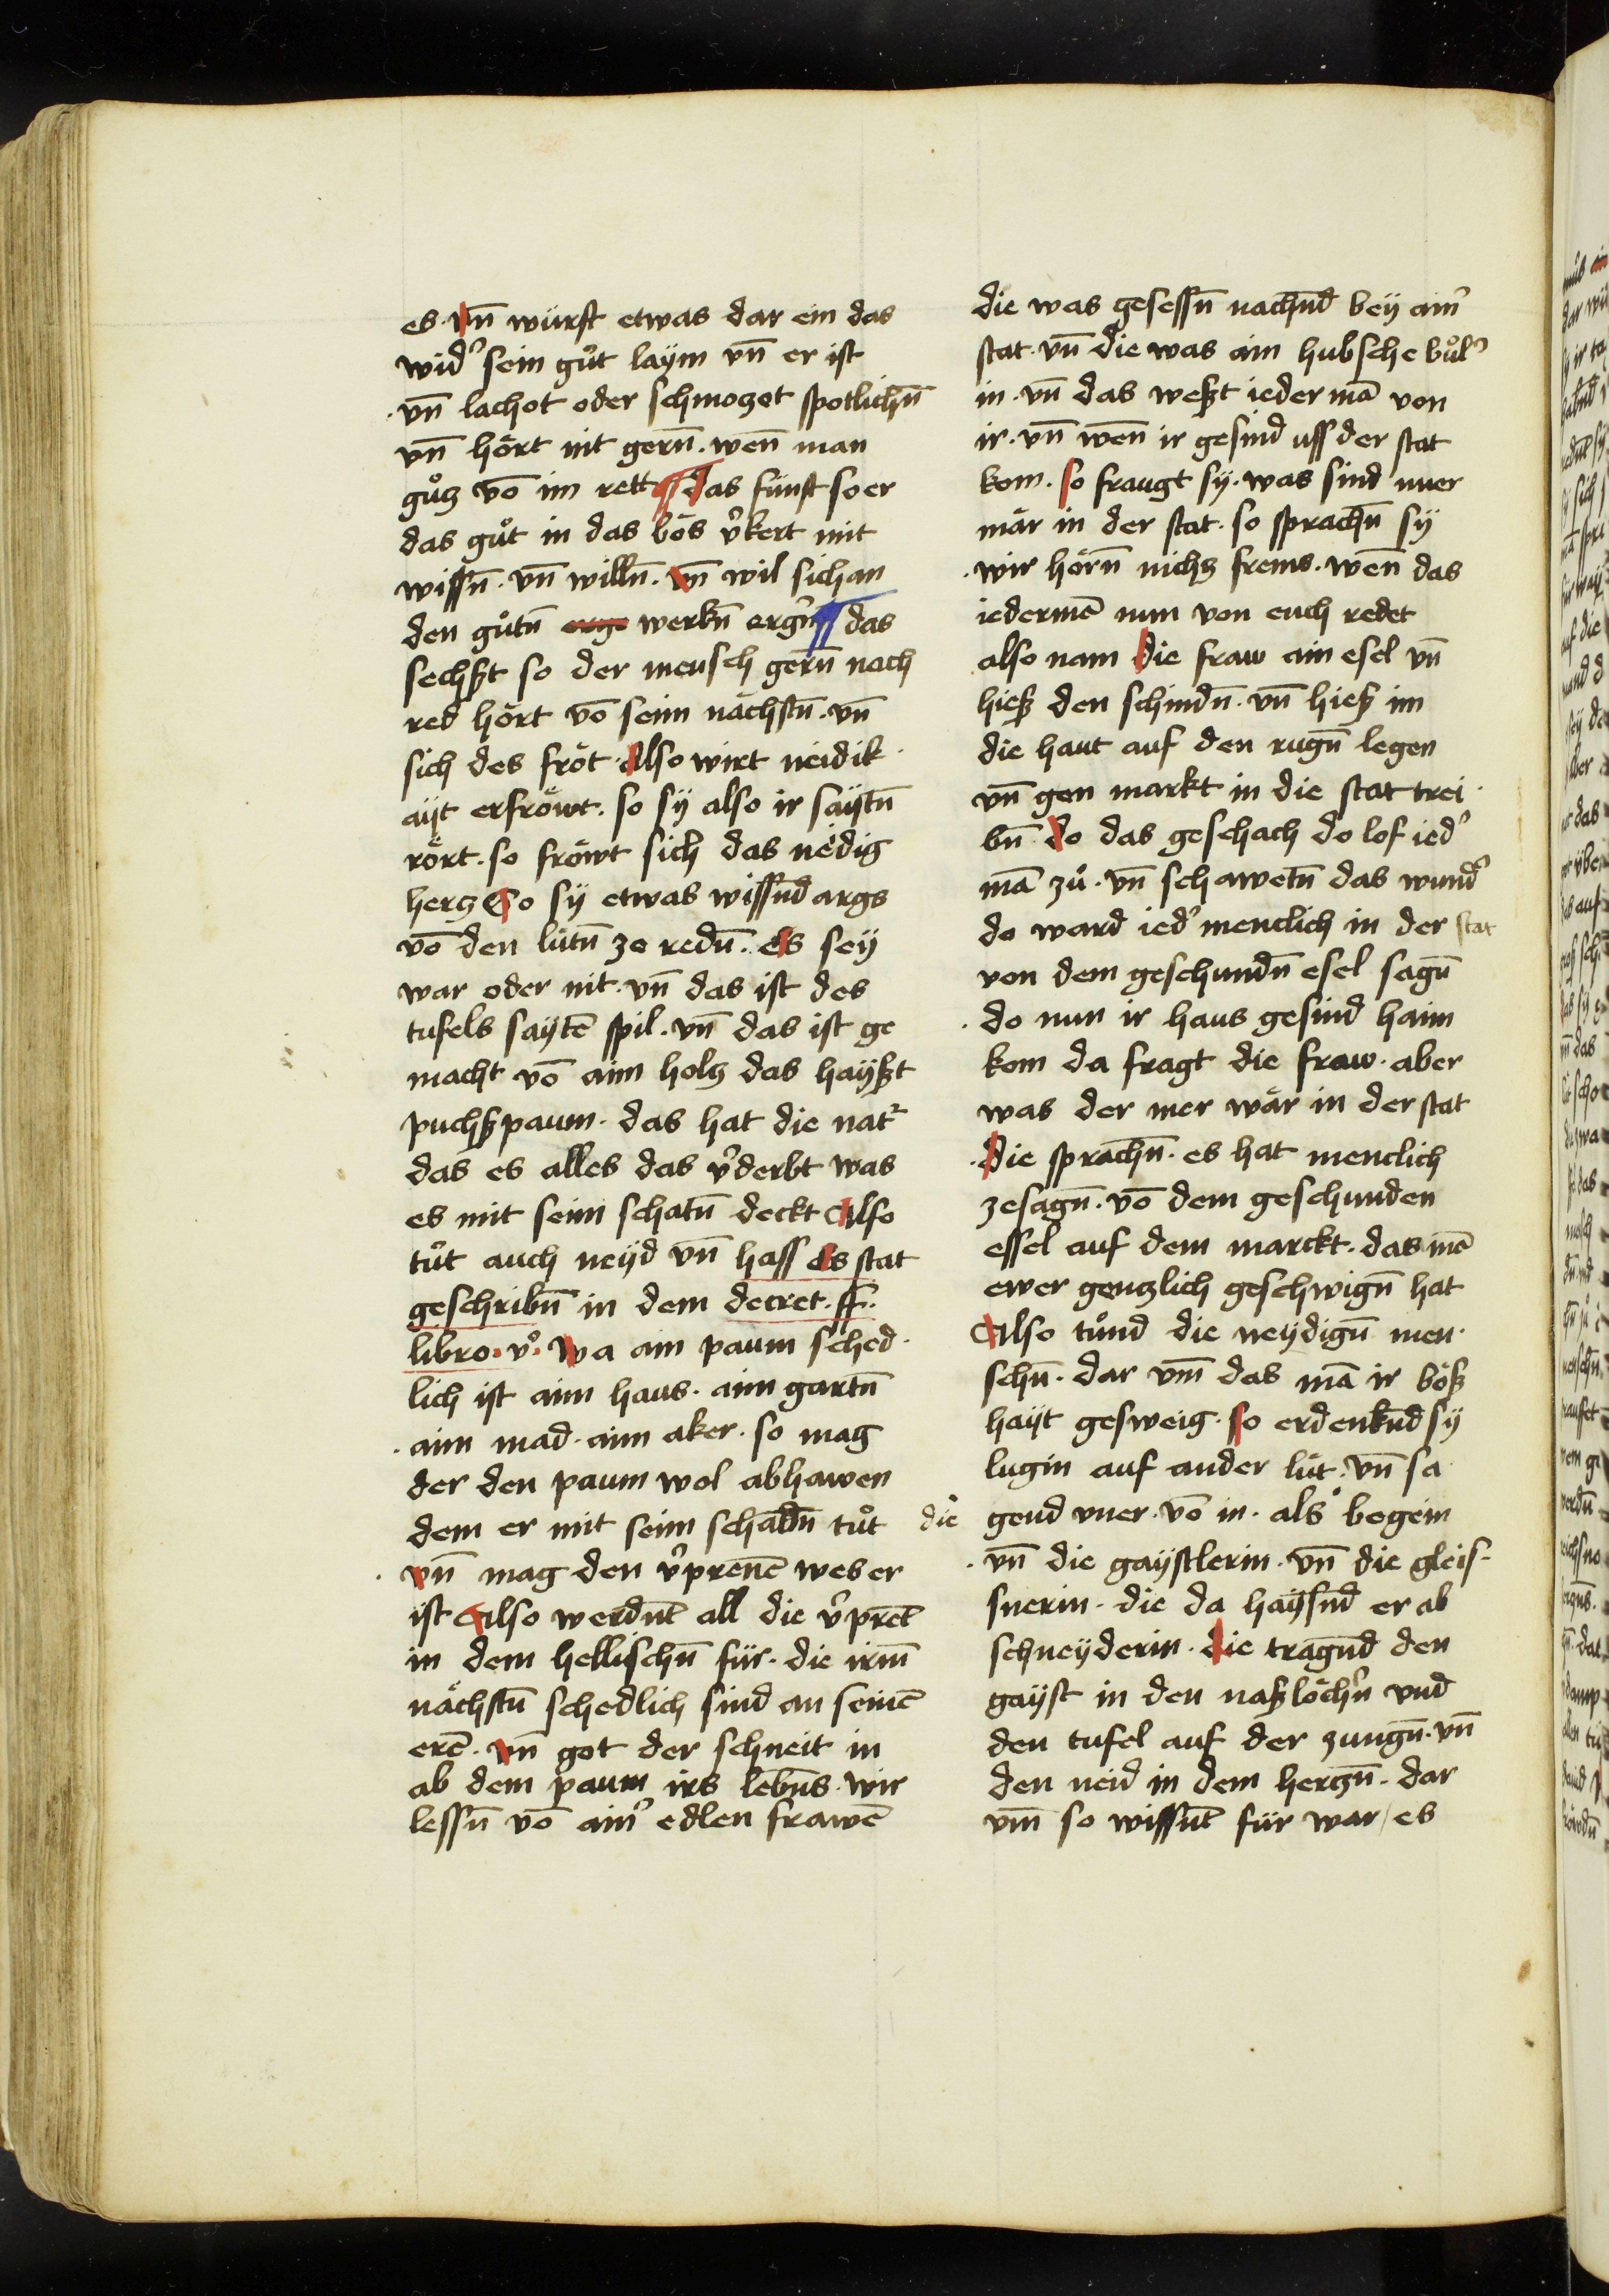 es. vn̄ würft etwas dar ein das
wid᷑ sein gůt laÿm vn̄ er ist
. vn̄ lachot oder schmozot spotlichn̄
vn̄ hört nit gern̄. wen̄ man
gůz vō im rett ¶ das fünft so er
das gůt in das bös v᷑kert mit
wissn̄. vn̄ willn̄. vn̄ wil sich an
den gůtn̄ erge werkn̄ ergn̄ ¶ das
sechszt so der mensch gern̄ nach
red hört vō seim nächstn̄. vn̄
sich des fröt. Also wirt neidik
aÿt erfröwt. so sÿ also ir saÿtn̄
rört. so fröwt sich das nedig
hertz So sÿ etwas wissn̄d args
vō den lütn̄ ze redn̄. es sey
war oder nit. vn̄ das ist des
tufels saÿtē spil. vn̄ das ist ge
macht vō aim holtz das haÿszt
puchszpaum. das hat die nat᷑
das es alles das v᷑derbt was
es mit seim schatn̄ deckt Also
tůt auch neÿd vn̄ hass Es stat
geschribn̄ in dem decret. ff.
libro. v°. Wa ain paum sched
lich ist aim haus. aim gartn̄
. aim mad. aim aker. so mag
der den paum wol abhawen
dem er mit seim schadn̄ tůt
. vn̄ mag den v᷑prenē wes er
ist Also werdn̄t all die v᷑prēt
in dem hellischn̄ für. die irm̄
nächstn̄ schedlich sind an seinē
erē. vn̄ got der schneit in
ab dem paum irs lebn̄s. wir
lessn̄ vō aim᷑ edlen frawē
die was gesessn̄ nachn̄d beÿ aim᷑
stat. vn̄ die was ain hubsche bůl᷑
in. vn̄ das weszt ieder mā von
ir. vn̄ wen̄ ir gesind uss der stat
kom. so fraugt sÿ. was sind nuer
mär in der stat. so sprachn̄ sÿ
. wir hörn̄ nichz frems. wen̄ das
iedermē num von euch redet
also nam die fraw ain esel vn̄
hiesz den schindn̄. vn̄ hiesz im
die haut auf den rugn̄ legen
vn̄ gen markt in die stat trei
bn̄. do das geschach do lof ied᷑
mā zů. vn̄ schawetn̄ das wund᷑
do ward ied᷑ menclich in der stat
von dem geschundn̄ esel sagn̄
. do nun ir haus gesind haim
kom da fragt die fraw. aber
was der mer wär in der stat
. die sprachn̄. es hat menclich
zesagn̄. vō dem geschunden
essel auf dem marckt. das mē
ewer gentzlich geschwign̄ hat
Also tůnd die neÿdign̄ men
schn̄. dar vm̄ das mā ir bösz
haÿt gesweig. so erdenkn̄d sÿ
lugin auf ander lüt. vn̄ sa
die gend vner. vō in. als begein
. vn̄ die gaÿstlerin. vn̄ die gleis-
snerin. die da haÿsn̄d er ab
schneÿderin. die tragn̄d den
gaÿst in den naszlöchn̄ vnd
den tufel auf der zungn̄. vn̄
den neid in dem hertzn̄. dar
vm̄ so wissn̄t für war / es